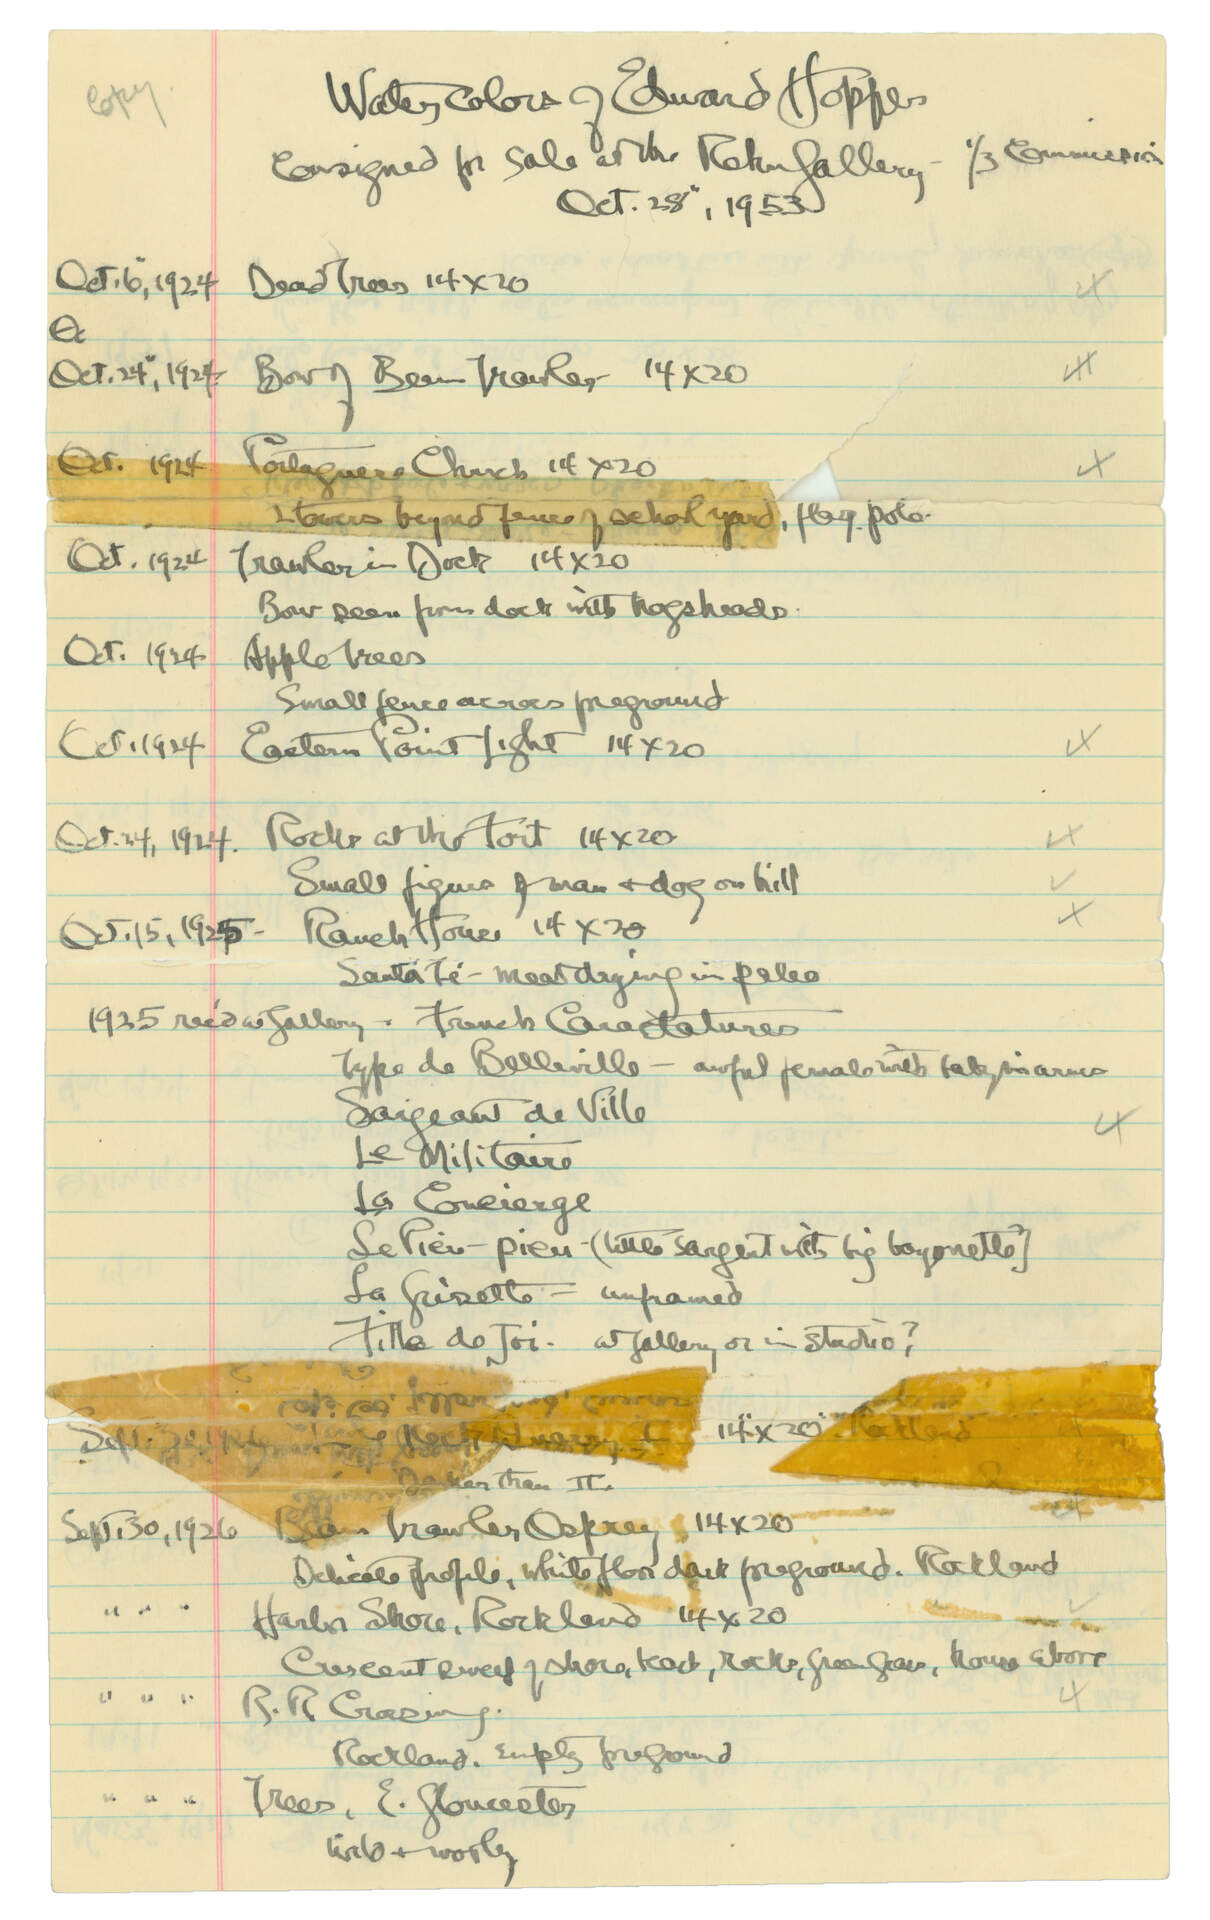 Copy.
Watercolors of Edward Hopper
Consigned for sale at the Rehn Gallery - 1/3 Commission
Oct. 28", 1953
Oct. 6", 1924 Dead Trees 14 x 20
Oc
Oct. 24", 1924 Bow of Beam Trawler - 14 x 20
Oct. 1924 Portaguese Church 14 x 20
2 towers beyond fence of school yard, flag pole.
Oct. 1924 Trawler in Dock 14 x 20
Bow seen from dock with hogsheads.
Oct. 1924 Apple trees
Small fence across foreground
Oct. 1924 Eastern Point Light 14 x 20
Oct. 24, 1924. Rocks at the Fort 14 x 20
Small figures of man + dog on hill
Oct. 15, 1925 - Ranch House 14 x 20
Santa Fé - meat drying in
1925 rec'd at Gallery - French Caractatures
Type de Belleville - awful female with baby in arms
Sargeant de Ville
Le Militaire
La Concierge
Le Pieu-pieu - (little sargent with big bayonette?)
La Grisette - unframed
Fille de Joi - at Gallery or in studio?
Sept. Rock Quarry I 14" x 20" Rockland
Darker than II.
Sept. 30, 1926 Beam Trawler Osprey 14 x 20
Delicate profile, white floor dark foreground. Rockland
" " " Harbor Shore, Rockland 14 x 20
Crescent sweep of shore, beach, rocks, green grass, house above
" " " R.R. Crossing.
Rockland. Empty foreground
" " " Trees, E. Gloucester